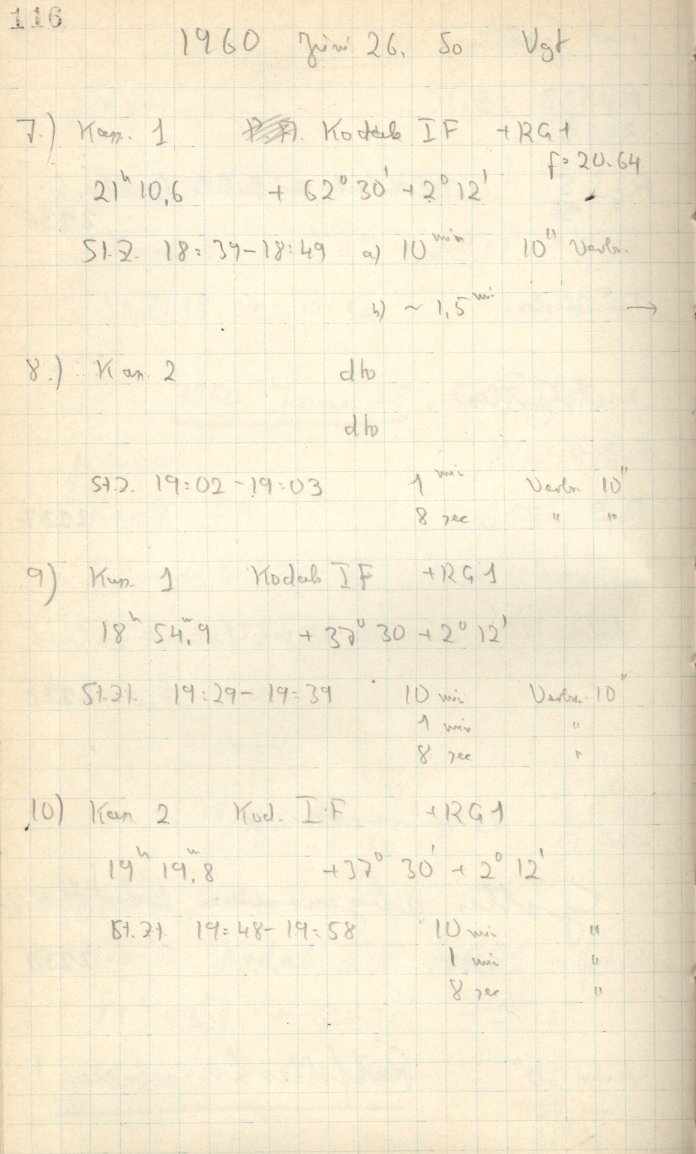 116
1960 Juni 26. So Vgt
7.) Kam. 1 Kodak IF +RG1
f=20.64
21ʰ 10,6 + 62° 30' + 2° 12'
St.Z. 18:39-18:49 a) 10 min 10" Verbr.
b) ~ 1,5 mi →
8.) Kam. 2 dto
dto
St.Z. 19:02-19:03 1 min Verbr. 10"
8 sec " "
9) Kam. 1 Kodak IF +RG1
18ʰ 54ᵐ,9 + 37° 30 + 2° 12'
St.Zt. 19:29-19:39 10 min Verbr. 10"
1 min "
8 sec "
10) Kam 2 Kod. IF +RG1
19ʰ 19ᵐ,8 +37° 30' + 2° 12'
St.Zt. 19:48-19:58 10 min "
1 min "
8 sec "